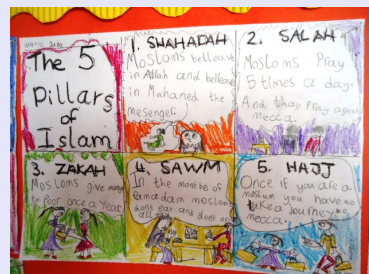 The 5
Pillars
of
Islam
1. SHAHADAH
Mosloms belleave
in Allah and belleave
in Muhamed the
mesenger.
2. SALAH
Mosloms Pray
5 times a day.
And thay Pray
mecca.
3. ZAKAH
Mosloms give money
to Poor once a year
4. SAWM
In the months of
Ramadam moslom
dont eat and dont
all
5. HAJJ
Once if you are a
moslum you have to
take a Journey to
mecca.